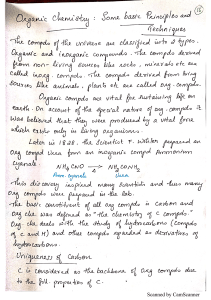 Organic Chemistry: Some basic Principles and
Techniques
The compds of the universe are classified into 2 types
Organic and inorganic compounds. The compds derived
from non-living sources like rocks, minerals etc are
called inorg. compds. The compds derived from living
sources like animals, plants etc are called org. compds.
Organic compds are vital for sustaining life on
earth. On account of the special nature of org. compds it
was believed that they were produced by a vital force
which exists only in living organisms.
Later in 1828, the scientist F. Wöhler prepared an
org compd urea from an inorganic compd Ammonium
cyanate.
NH4CNO → NH2CONH2
Amm. cyanate Urea
This discovery inspired many scientists and thus many
org compds were prepared in the lab.
The basic constituent of all org compds is Carbon and
org che was defined as "the chemistry of C compds"
Org che deals with the study of hydrocarbons (compds
of C and H) and other compds regarded as derivatives of
hydrocarbons.
Uniqueness of Carbon
C is considered as the backbone of org compds due
to the foll. properties of C.
Scanned by CamScanner